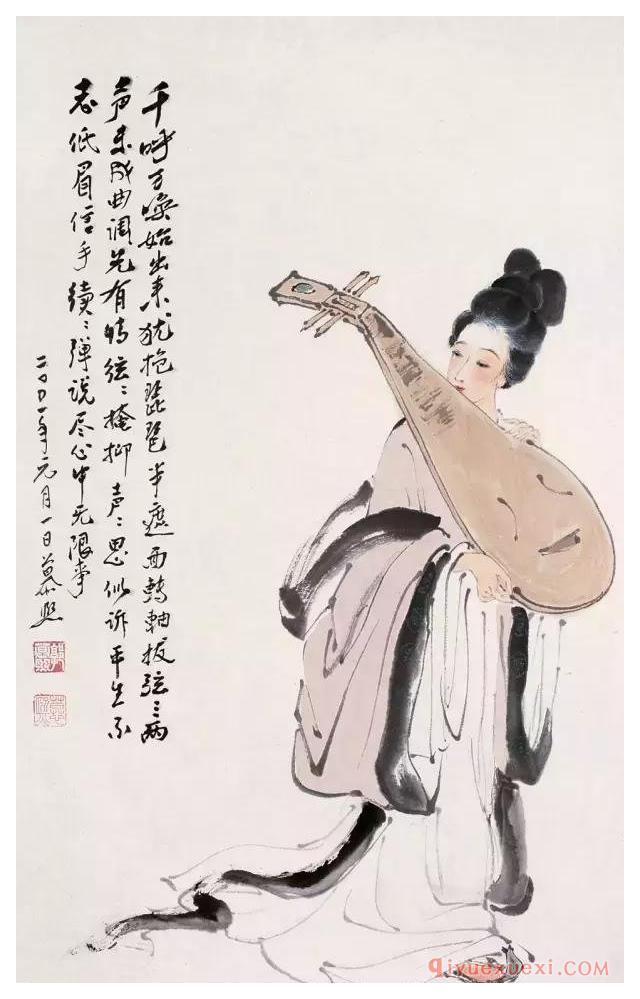 千呼万唤始出来犹抱琵琶半遮面轉軸拨弦三两
声未成曲调先有情弦〻掩抑声〻思似诉平生不
志低眉信手續〻弹说尽心中无限事
二〇〇一年元月一日
qiyuexuexi.com